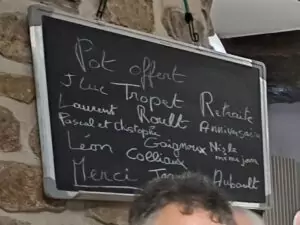 Pot offert
J Luc Tropet Retraite
Laurent Roult Anniversaire
Pascal et Chstophe
Gaignoux
Léon Colliaux
Merci Aubault